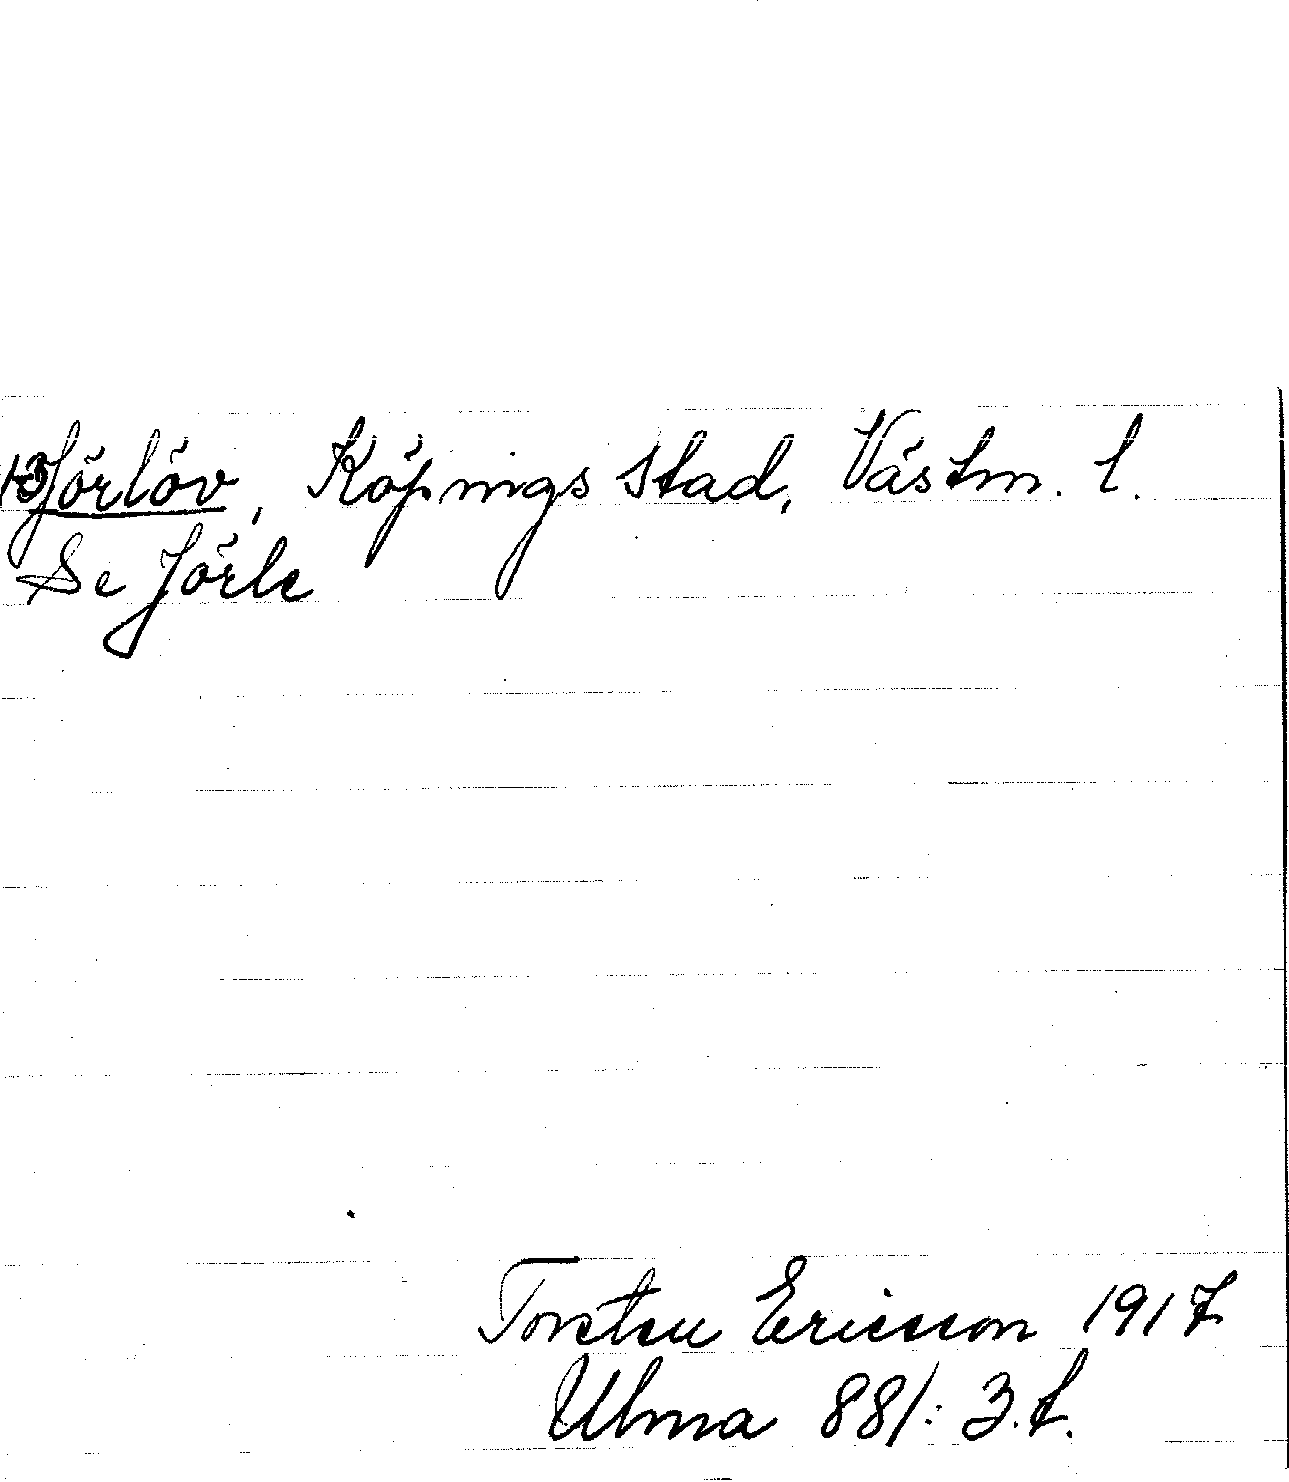 13) Jörlöv, Köpings stad, Västm. l.
Se Jörle
Torsten Ericsson 1917
Ulma 881: 3. f.